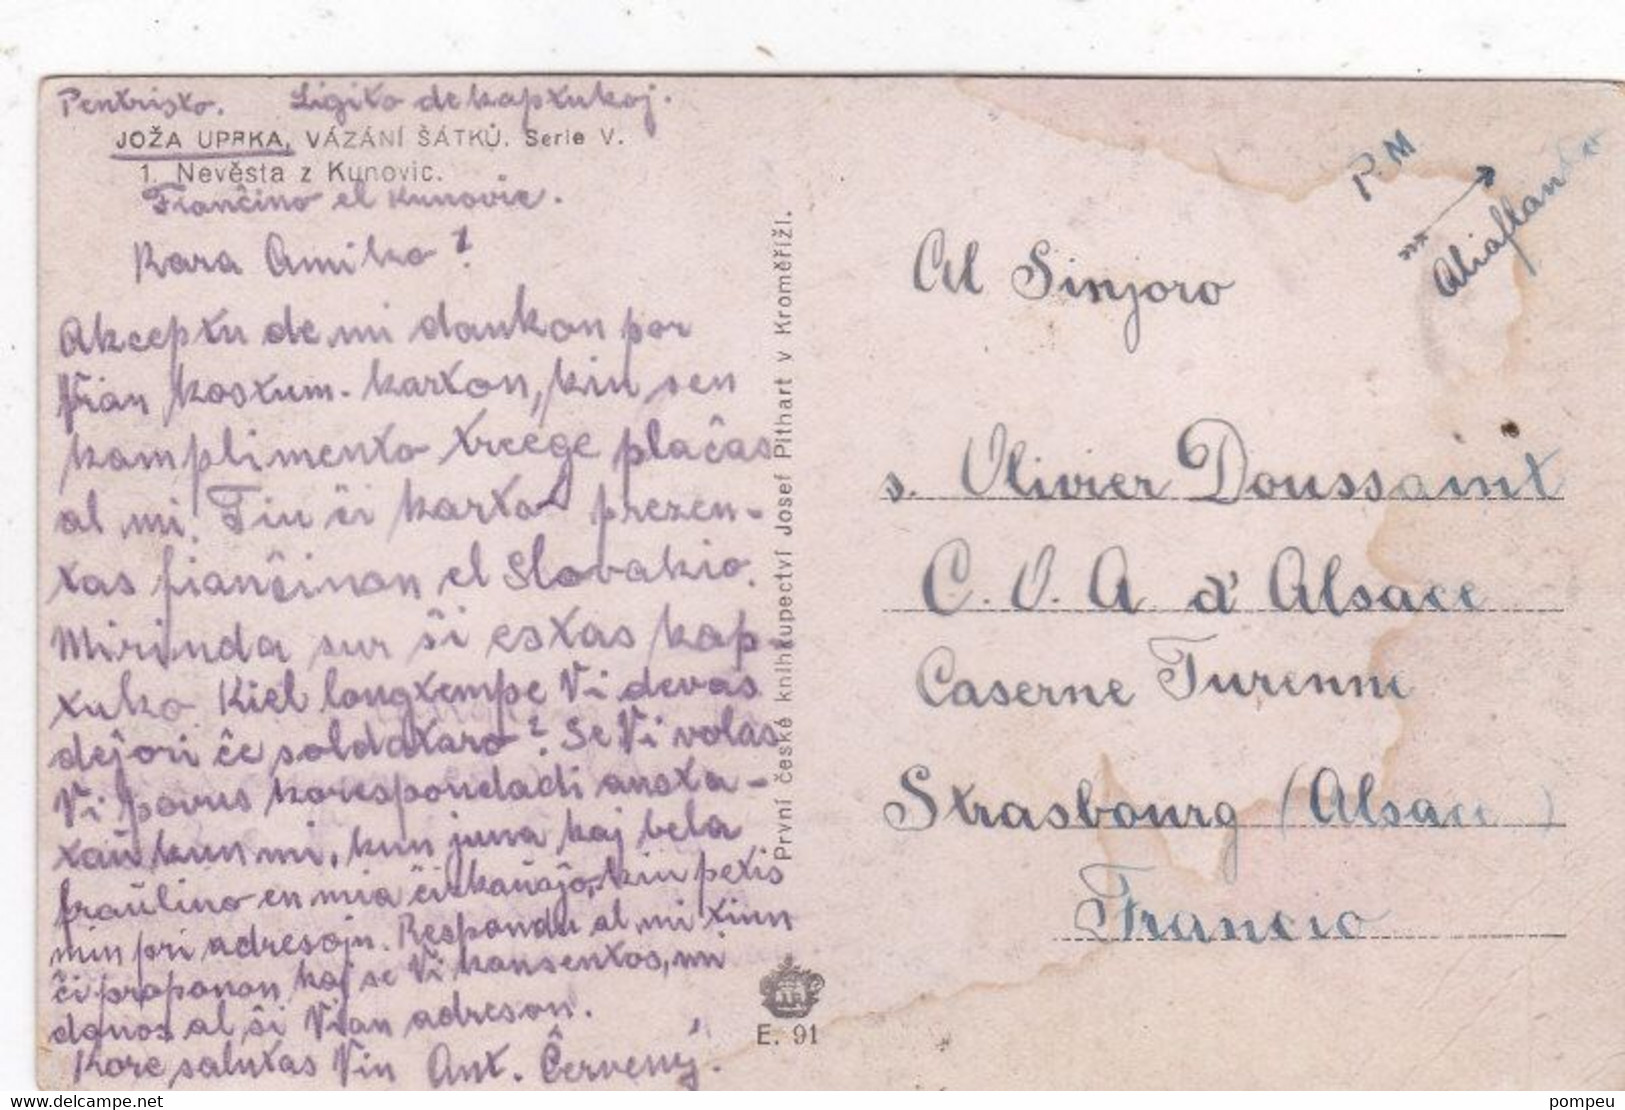 Pentristo. Ligito de kaptukoj.
JOŽA UPRKA, VÁZÁNÍ ŠÁTKŮ. Serie V.
1. Nevěsta z Kunovic.
Fianĉino el Kunovic.
Kara Amiko!
Akceptu de mi dankon por
Vian kostum-karton, kiu sen
komplimento treege plaĉas
al mi. Tiu ĉi karto prezen-
tas fianĉinon el Slovakio.
Mirinda sur ŝi estas kap-
tuko. Kiel longtempe Vi devas
deĵori ĉe soldataro? Se Vi volas
Vi povus korespondadi ansta-
taŭ kun mi, kun juna kaj bela
fraŭlino en mia ĉirkaŭaĵo, kiu petis
min pri adresojn. Respondu al mi tiun
ĉi proponon kaj se Vi konsentos, mi
donos al ŝi Vian adreson.
Kore salutas Vin Ant. Červený.
První české knihkupectví Josef Pithart v Kroměříži.
E. 91
P.M
Aliaflanko
Al Sinjoro
s. Olivier Doussaint
C. O. A d'Alsace
Caserne Turenne
Strasbourg (Alsace)
Francio
delcampe.net
pompeu